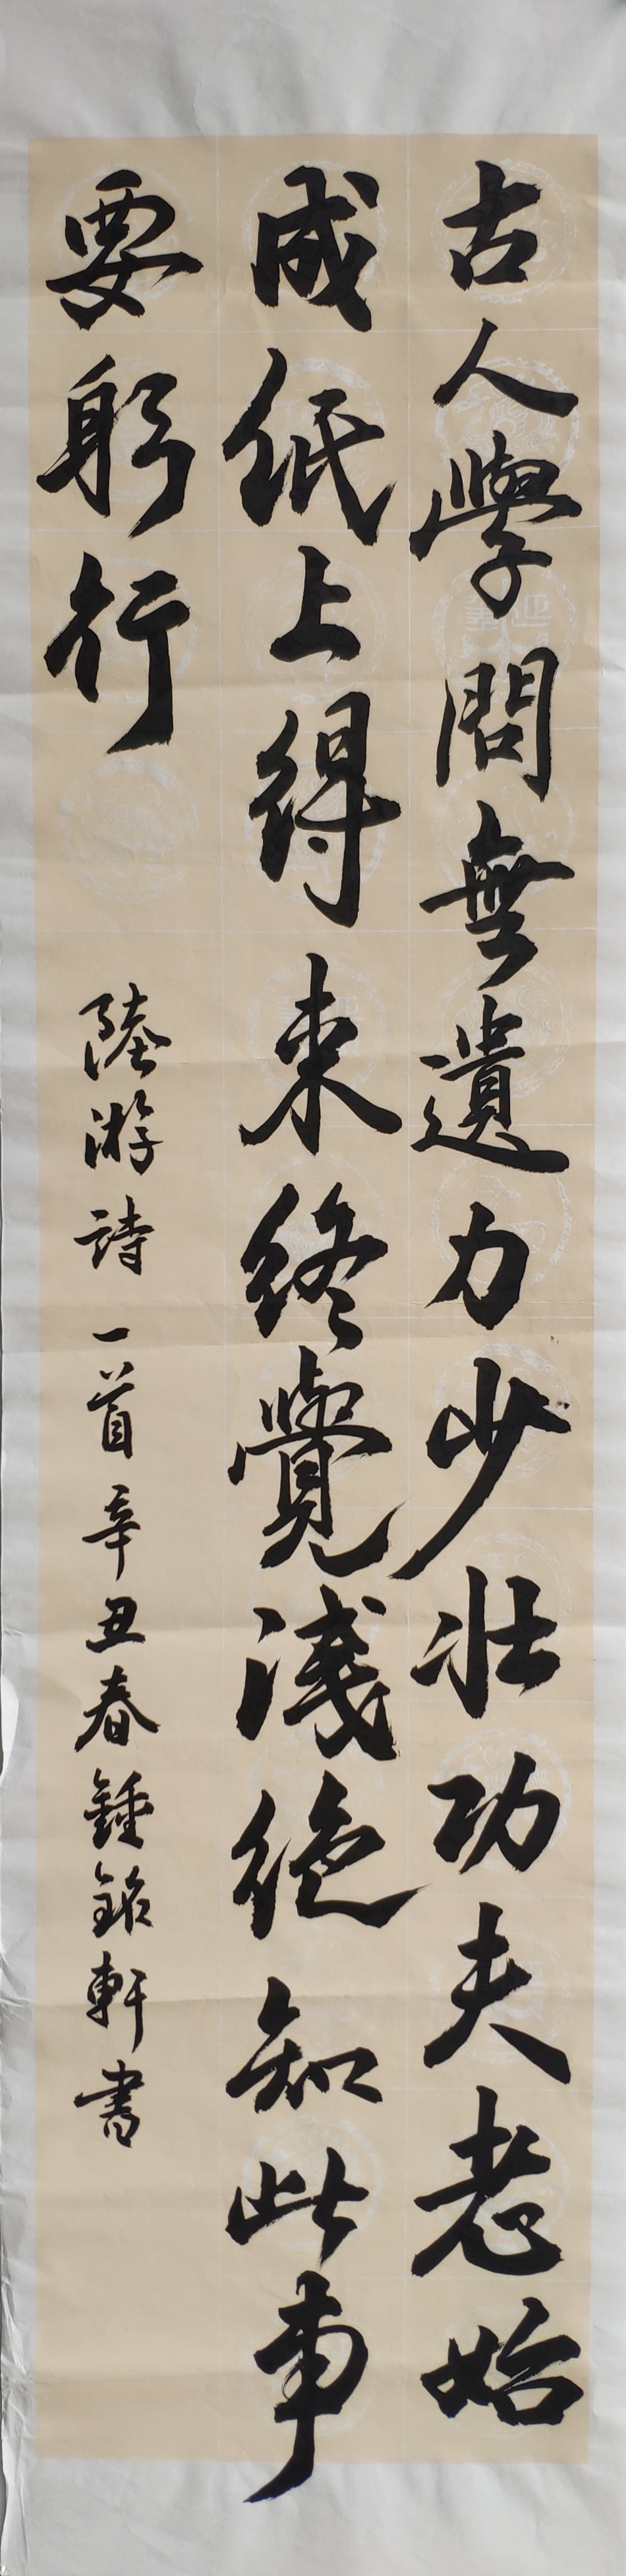 古人學問無遺力少壯功夫老始
成紙上得来終覺淺絶知此事
要躬行
陸游詩一首辛丑春鍾銘軒書